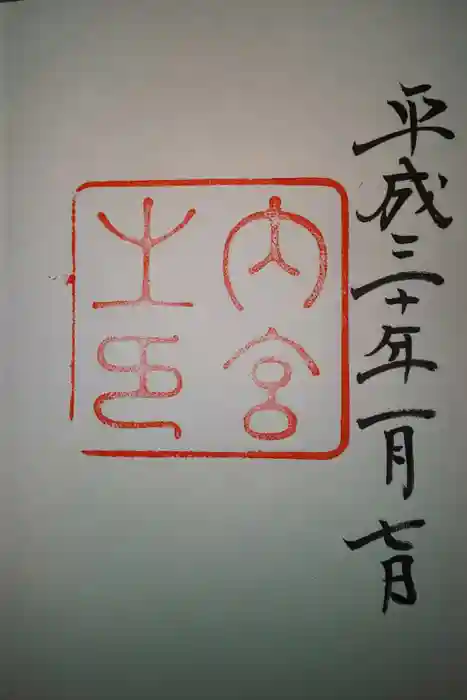 平成三十年一月七日
内宮
之印